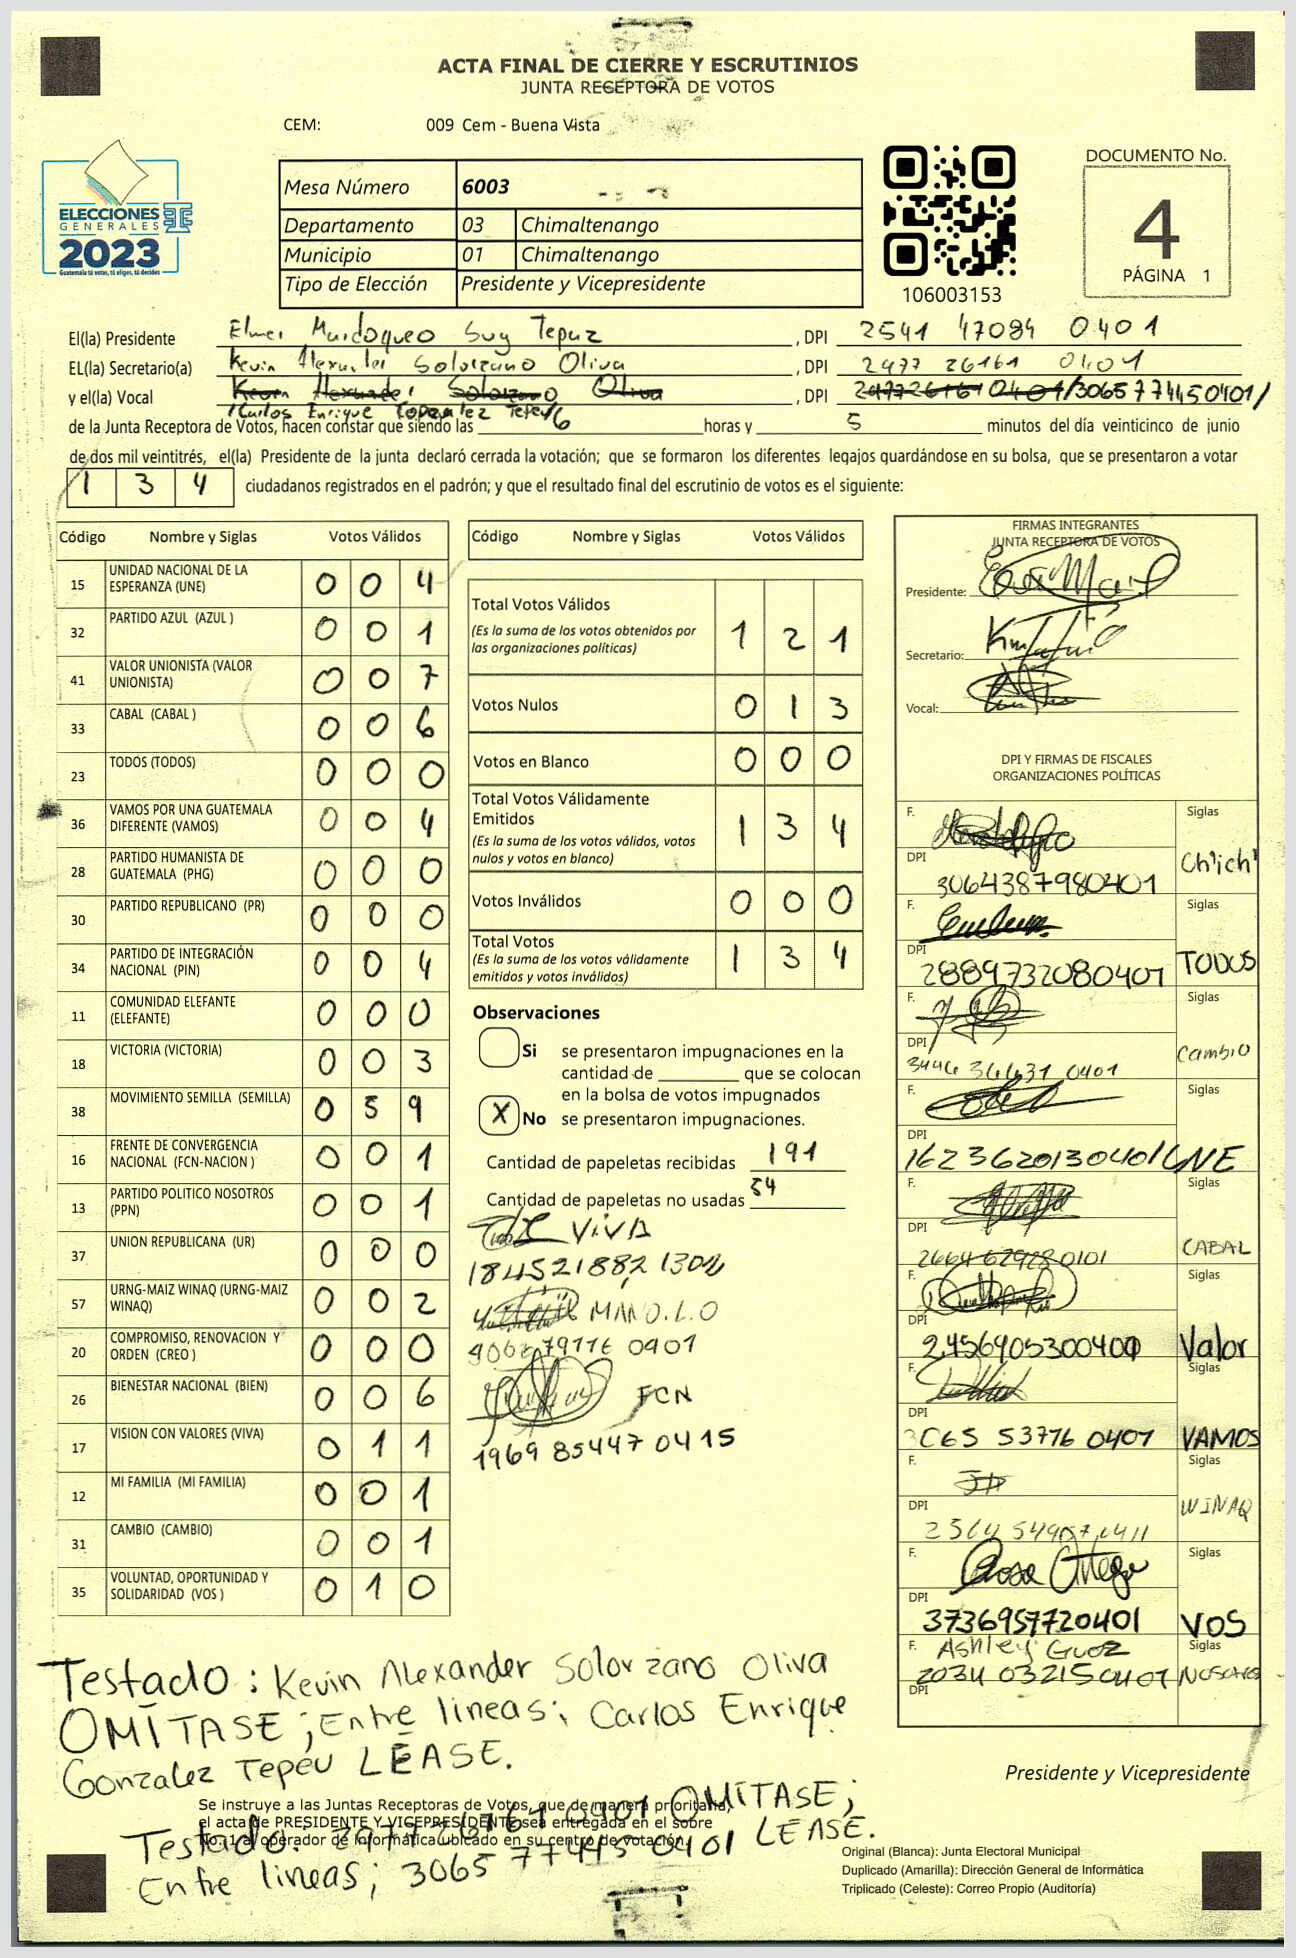 ACTA FINAL DE CIERRE Y ESCRUTINIOS
JUNTA RECEPTORA DE VOTOS
CEM: 009 Cem - Buena Vista
ELECCIONES
GENERALES
2023
Guatemala tú votas, tú eliges, tú decides
Mesa Número 6003
Departamento 03 Chimaltenango
Municipio 01 Chimaltenango
Tipo de Elección Presidente y Vicepresidente
106003153
DOCUMENTO No.
4
PÁGINA 1
El(la) Presidente Elmer Mardoqueo Suy Tepaz, DPI 2541 47084 0401
EL(la) Secretario(a) Kevin Alexander Solorzano Oliva, DPI 2977 26161 0401
y el(la) Vocal Kevin Alexander Solorzano Oliva, DPI 2977 26161 0401/3065774450401/
Carlos Enrique Gonzalez Tepeu
de la Junta Receptora de Votos, hacen constar que siendo las 6 horas y 5 minutos del día veinticinco de junio
de dos mil veintitrés, el(la) Presidente de la junta declaró cerrada la votación; que se formaron los diferentes legajos guardándose en su bolsa, que se presentaron a votar
1 3 4 ciudadanos registrados en el padrón; y que el resultado final del escrutinio de votos es el siguiente:
Código Nombre y Siglas Votos Válidos
15 UNIDAD NACIONAL DE LA ESPERANZA (UNE) 0 0 4
32 PARTIDO AZUL (AZUL ) 0 0 1
41 VALOR UNIONISTA (VALOR UNIONISTA) 0 0 7
33 CABAL (CABAL ) 0 0 6
23 TODOS (TODOS) 0 0 0
36 VAMOS POR UNA GUATEMALA DIFERENTE (VAMOS) 0 0 4
28 PARTIDO HUMANISTA DE GUATEMALA (PHG) 0 0 0
30 PARTIDO REPUBLICANO (PR) 0 0 0
34 PARTIDO DE INTEGRACIÓN NACIONAL (PIN) 0 0 4
11 COMUNIDAD ELEFANTE (ELEFANTE) 0 0 0
18 VICTORIA (VICTORIA) 0 0 3
38 MOVIMIENTO SEMILLA (SEMILLA) 0 5 9
16 FRENTE DE CONVERGENCIA NACIONAL (FCN-NACION ) 0 0 1
13 PARTIDO POLITICO NOSOTROS (PPN) 0 0 1
37 UNION REPUBLICANA (UR) 0 0 0
57 URNG-MAIZ WINAQ (URNG-MAIZ WINAQ) 0 0 2
20 COMPROMISO, RENOVACION Y ORDEN (CREO ) 0 0 0
26 BIENESTAR NACIONAL (BIEN) 0 0 6
17 VISION CON VALORES (VIVA) 0 1 1
12 MI FAMILIA (MI FAMILIA) 0 0 1
31 CAMBIO (CAMBIO) 0 0 1
35 VOLUNTAD, OPORTUNIDAD Y SOLIDARIDAD (VOS ) 0 1 0
Código Nombre y Siglas Votos Válidos
Total Votos Válidos 1 2 1
(Es la suma de los votos obtenidos por
las organizaciones políticas)
Votos Nulos 0 1 3
Votos en Blanco 0 0 0
Total Votos Válidamente
Emitidos 1 3 4
(Es la suma de los votos válidos, votos
nulos y votos en blanco)
Votos Inválidos 0 0 0
Total Votos 1 3 4
(Es la suma de los votos válidamente
emitidos y votos inválidos)
Observaciones
Si se presentaron impugnaciones en la
cantidad de ________ que se colocan
en la bolsa de votos impugnados
X No se presentaron impugnaciones.
Cantidad de papeletas recibidas 191
Cantidad de papeletas no usadas 54
VIVA
184521882 1302
MANO.L.O
79776 0401
FCN
1969 85447 0415
FIRMAS INTEGRANTES
JUNTA RECEPTORA DE VOTOS
Presidente:
Secretario:
Vocal:
DPI Y FIRMAS DE FISCALES
ORGANIZACIONES POLÍTICAS
F. Siglas
DPI 3064387980401
F. Siglas TODOS
DPI 2889732080401
F. Siglas Cambio
DPI 3446 36631 0401
F. Siglas UNE
DPI 1623620130401
F. Siglas CABAL
DPI 2664 62928 0101
F. Siglas Valor
DPI 2456905300400
F. Siglas VAMOS
DPI 3065 53776 0401
F. Siglas WINAQ
DPI
F. Rosa Ortega Siglas VOS
DPI 3736957720401
F. Ashley Guoz Siglas
DPI 2034 03215 0401
Testado: Kevin Alexander Solorzano Oliva
OMÍTASE; Entre lineas; Carlos Enrique
Gonzalez Tepeu LÉASE.
Se instruye a las Juntas Receptoras de Votos, que de manera prioritaria,
el acta de PRESIDENTE Y VICEPRESIDENTE sea entregada en el sobre
No. 1 al operador de informática ubicado en su centro de votación.
Testado: 2977 26161 0401 OMÍTASE;
Entre lineas; 3065 77445 0401 LEASE.
Presidente y Vicepresidente
Original (Blanca): Junta Electoral Municipal
Duplicado (Amarilla): Dirección General de Informática
Triplicado (Celeste): Correo Propio (Auditoría)